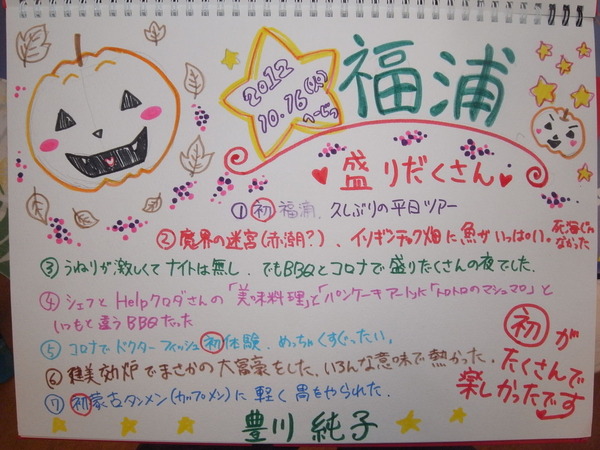 2012
10.16(火)
福浦
盛りだくさん
①初福浦、久しぶりの平日ツアー
②魔界の迷宮(赤潮?)、イソギンチャク畑に魚がいっぱい。
死海じゃなかった
③うねりが激しくてナイトは無し、でもBBQとコロナで盛りだくさんの夜でした。
④シェフとHelpクロダさんの「美味料理」と「パンケーキアート」と「トロトロのマシュマロ」と
いつもと違うBBQだった
⑤コロナでドクターフィッシュ初体験、めっちゃくすぐったい。
⑥褸美効炉でまさかの大富豪をした、いろんな意味で熱かった。
⑦初蒙古タンメン(カップメン)に軽く胃をやられた。
初が
たくさんで
楽しかったです
豊川純子